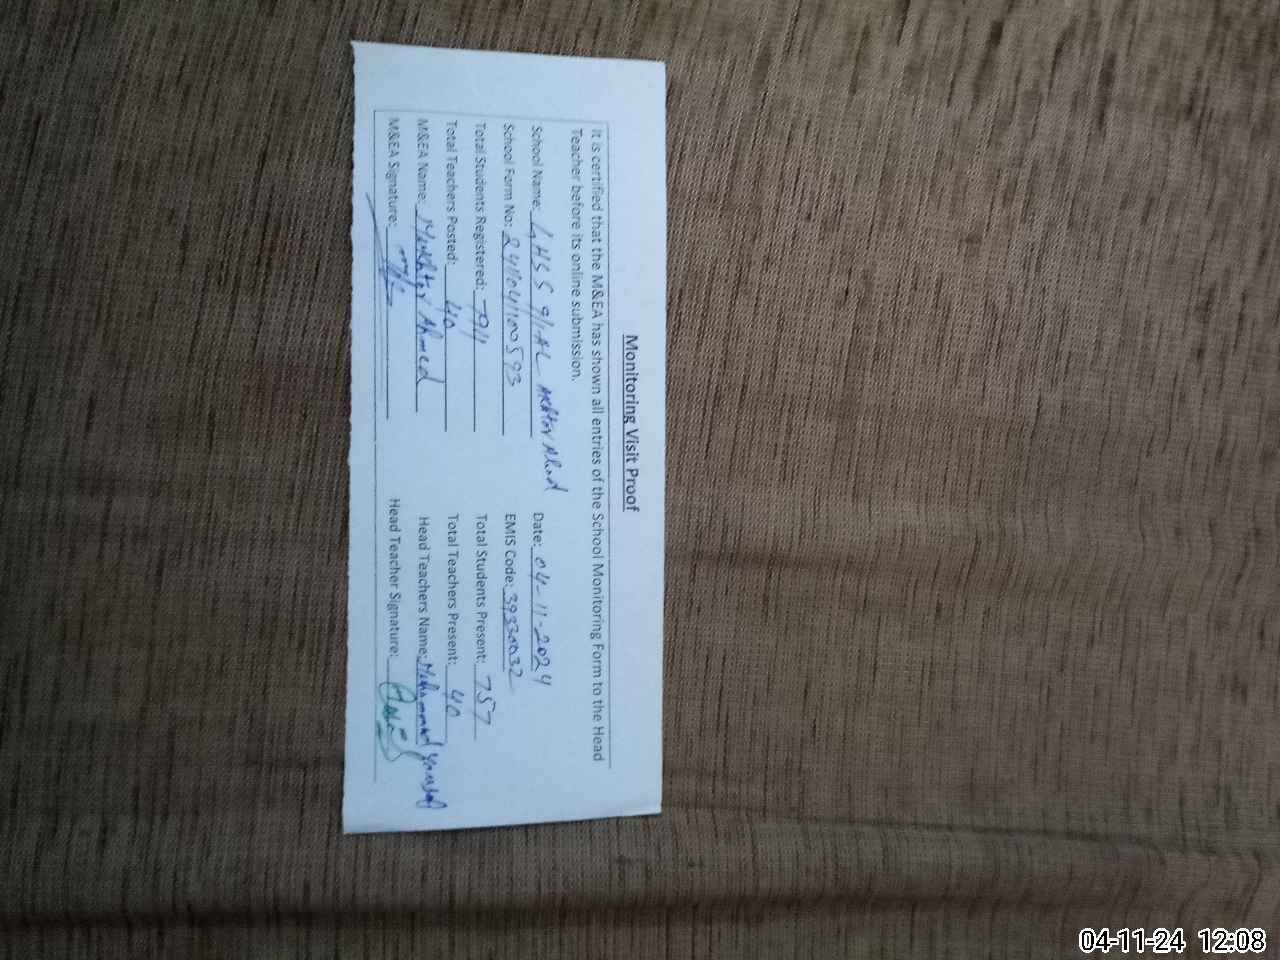 Monitoring Visit Proof
It is certified that the M&EA has shown all entries of the School Monitoring Form to the Head
Teacher before its online submission.
School Name: GHSS 9/1-AL Akhtar Abad Date: 04-11-2024
School Form No: EMIS Code: 39330032
Total Students Registered: Total Students Present: 757
Total Teachers Posted: 40 Total Teachers Present: 40
M&EA Name: Mukhtar Ahmed Head Teachers Name: Muhammad Yousaf
M&EA Signature: Head Teacher Signature:
04-11-24 12:08